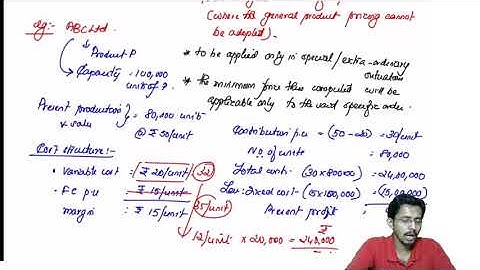 (where the general product pricing cannot
be adopted).
eg:- ABC Ltd.
Product P
Capacity = 100,000
units of P.
* to be applied only in special/extra-ordinary
situation
* the minimum price thus computed will be
applicable only to the said specific order.
Present production
& sale
80,000 units
@ ₹50/unit
Contribution p.u = (50-20) = 30/unit
No. of units = 80,000
Cost structure:-
Variable cost = ₹20/unit 32
F C p.u = ₹15/unit
margin : ₹15/unit
35/unit
Total contr. (30×80000) = 24,00,000
Less: fixed cost - (15×100,000) (15,00,000)
Present profit
12/unit × 20,000 = ₹240,000